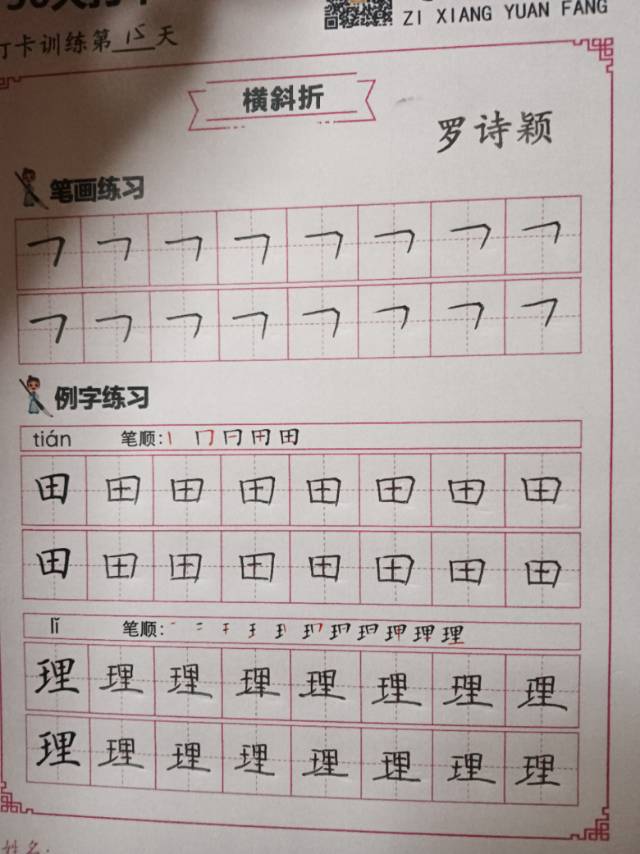 ZI XIANG YUAN FANG
打卡训练第15天
横斜折
罗诗颖
笔画练习
㇇ ㇇ ㇇ ㇇ ㇇ ㇇ ㇇ ㇇
㇇ ㇇ ㇇ ㇇ ㇇ ㇇ ㇇ ㇇
例字练习
tián 笔顺:
田 田 田 田 田 田 田 田
田 田 田 田 田 田 田 田
lǐ 笔顺:
理 理 理 理 理 理 理 理
理 理 理 理 理 理 理 理
姓名: